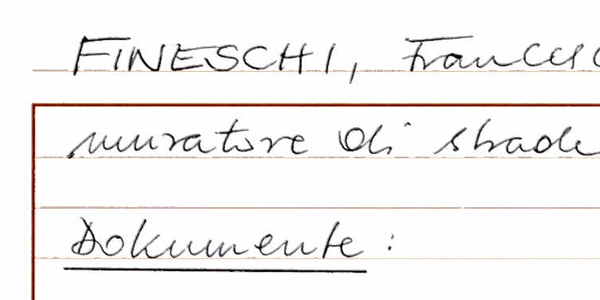 FINESCHI, Francesc
muratore di strade
Dokumente :